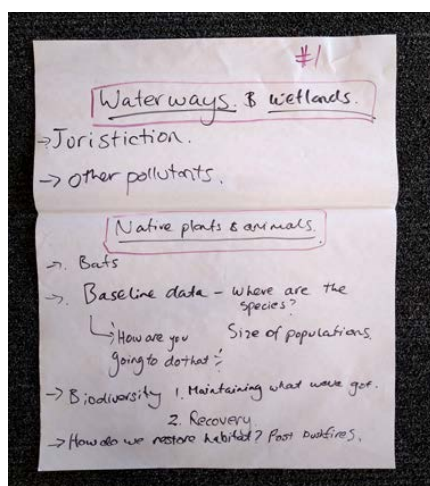 #1
Waterways & Wetlands.
→ Joristiction.
→ other pollutants.
Native plants & animals.
→. Bats
→. Baseline data - where are the
species?
↳ How are you Size of populations.
going to do that
→ Biodiversity 1. Maintaining what weve got.
2. Recovery.
→ How do we restore habitat? Post Bushfires.